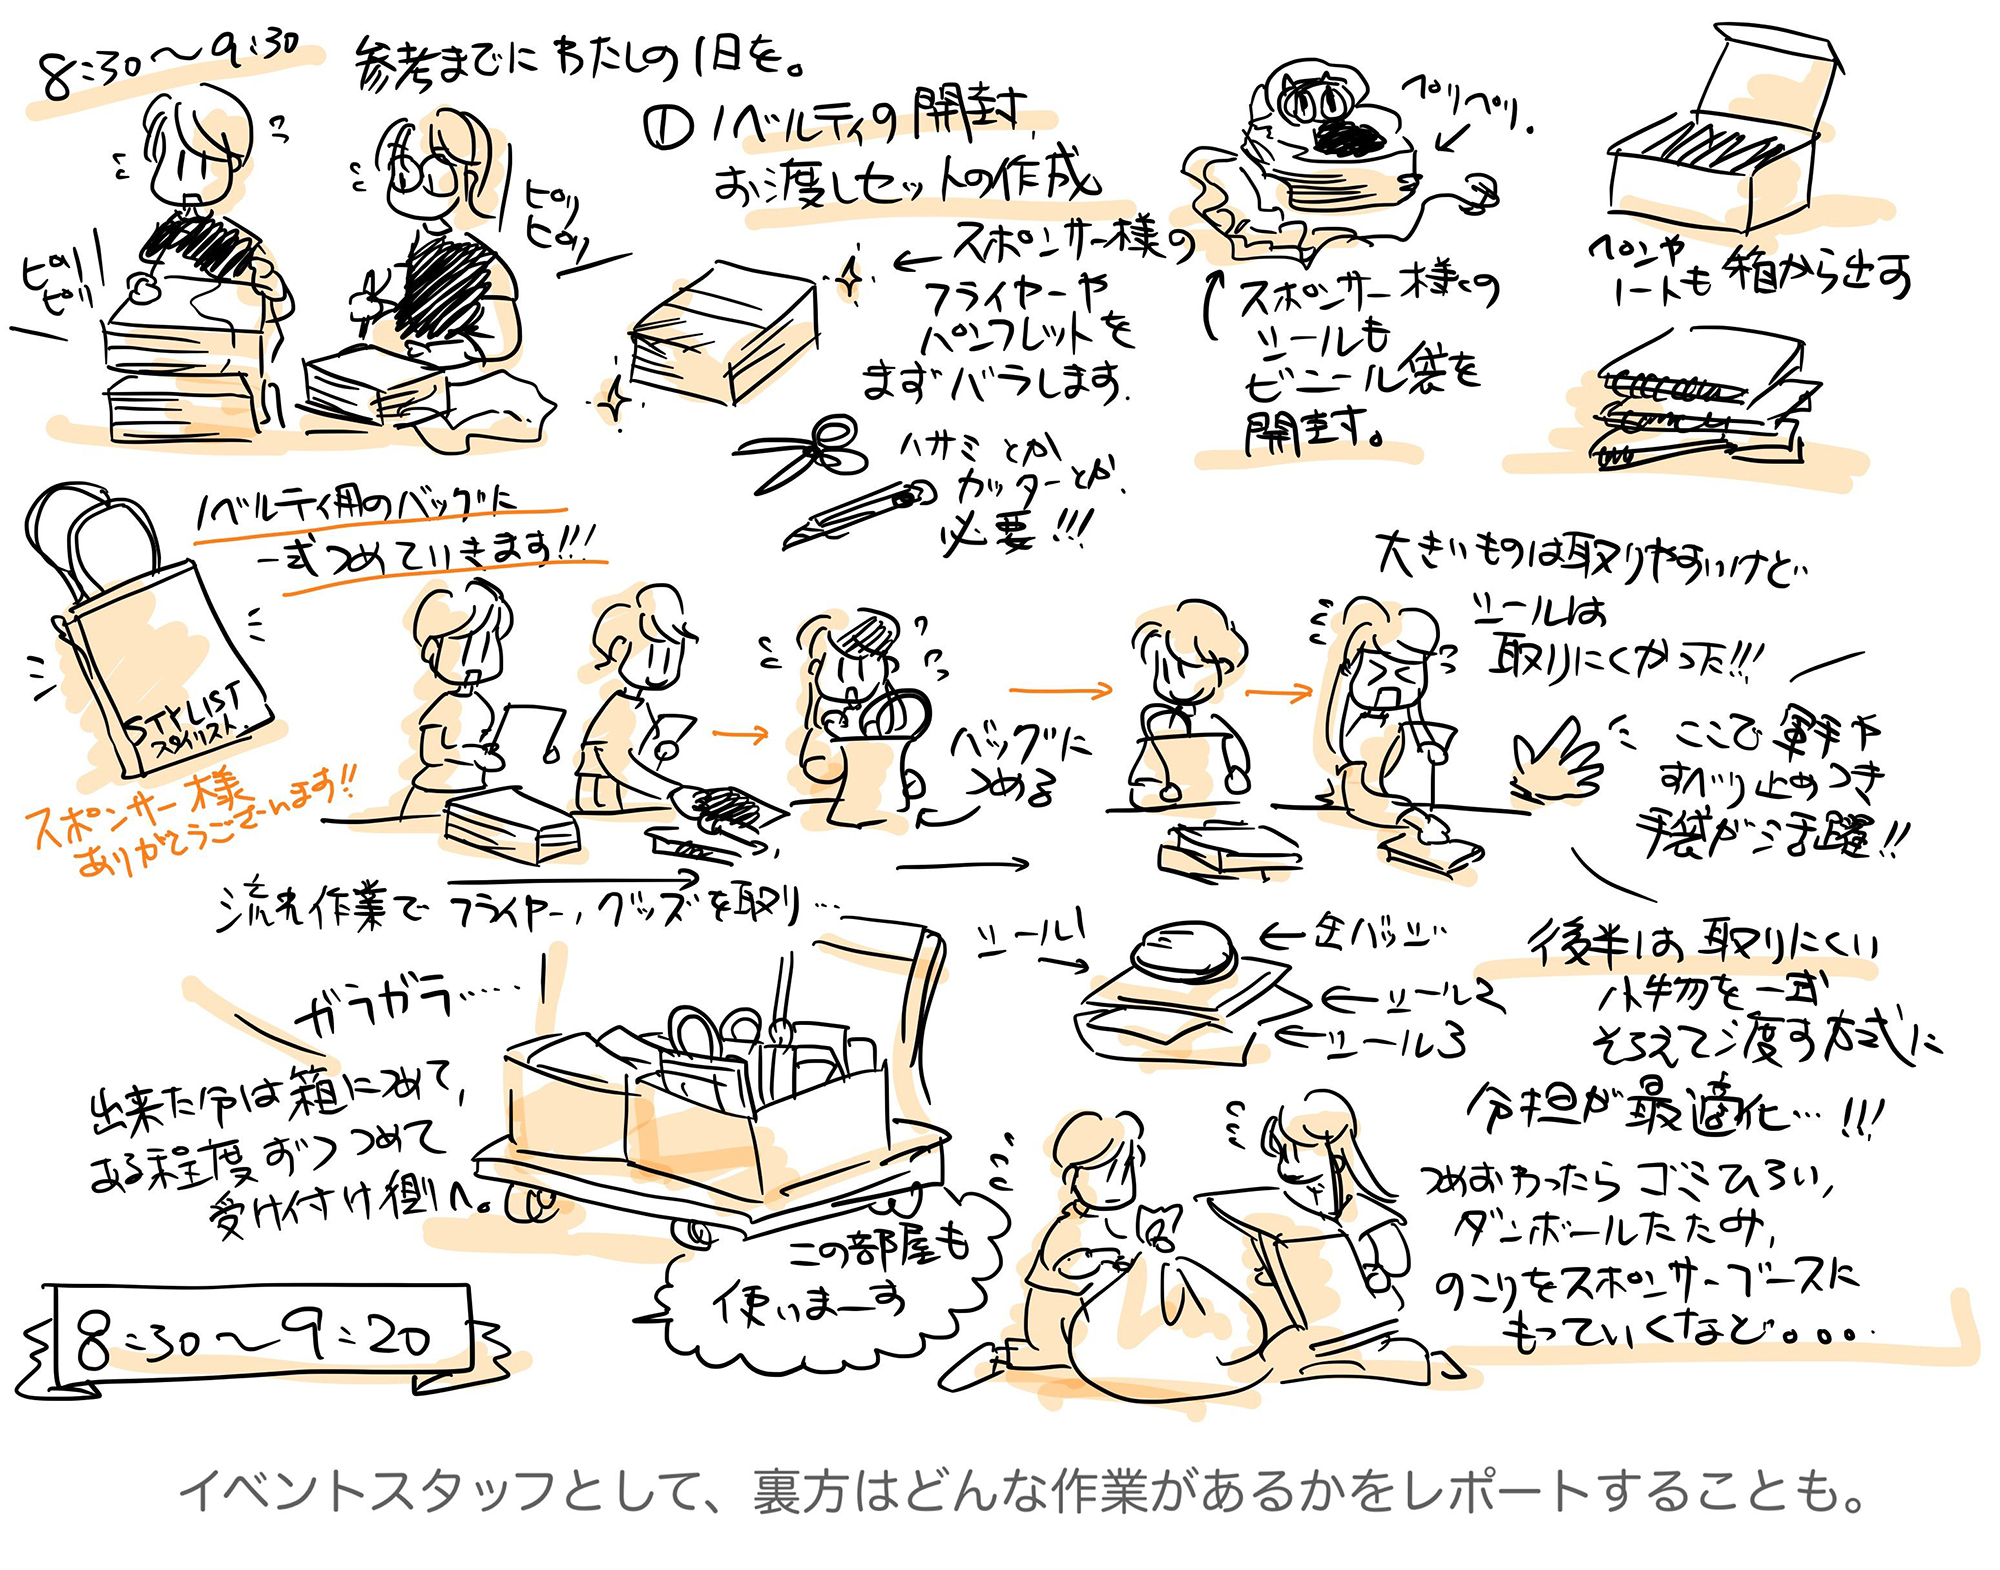 8:30〜9:30
参考までにわたしの1日を。
① ノベルティの開封、
お渡しセットの作成
ピリ
ピリ
ピリッ
ピリッ
←スポンサー様の
フライヤーや
パンフレットを
まずバラします.
ハサミとか
カッターとか.
必要!!!
ペリペリ.
スポンサー様の
ツールも
ビニール袋を
開封。
ペンや
ノートも箱から出す
ノベルティ用のバッグに
一式つめていきます!!!
STYLIST
スタイリスト.
スポンサー様
ありがとうございます!!
バッグに
つめる
大きいものは取りやすいけど
ツールは
取りにくかった!!!
ここで軍手や
すべり止めつき
手袋が活躍!!
流れ作業でフライヤー,グッズを取り…
ツール1
←缶バッジ
←ツール2
←ツール3
後半は取りにくい
小物を一式
そろえて渡す方式に
分担が最適化…!!!
ガラガラ……
出来た分は箱につめて,
ある程度ずつつめて
受け付け側へ。
この部屋も
使いまーす
つめおわったらゴミひろい,
ダンボールたたみ,
のこりをスポンサーブースに
もっていくなど。。。.
8:30〜9:20
イベントスタッフとして、裏方はどんな作業があるかをレポートすることも。